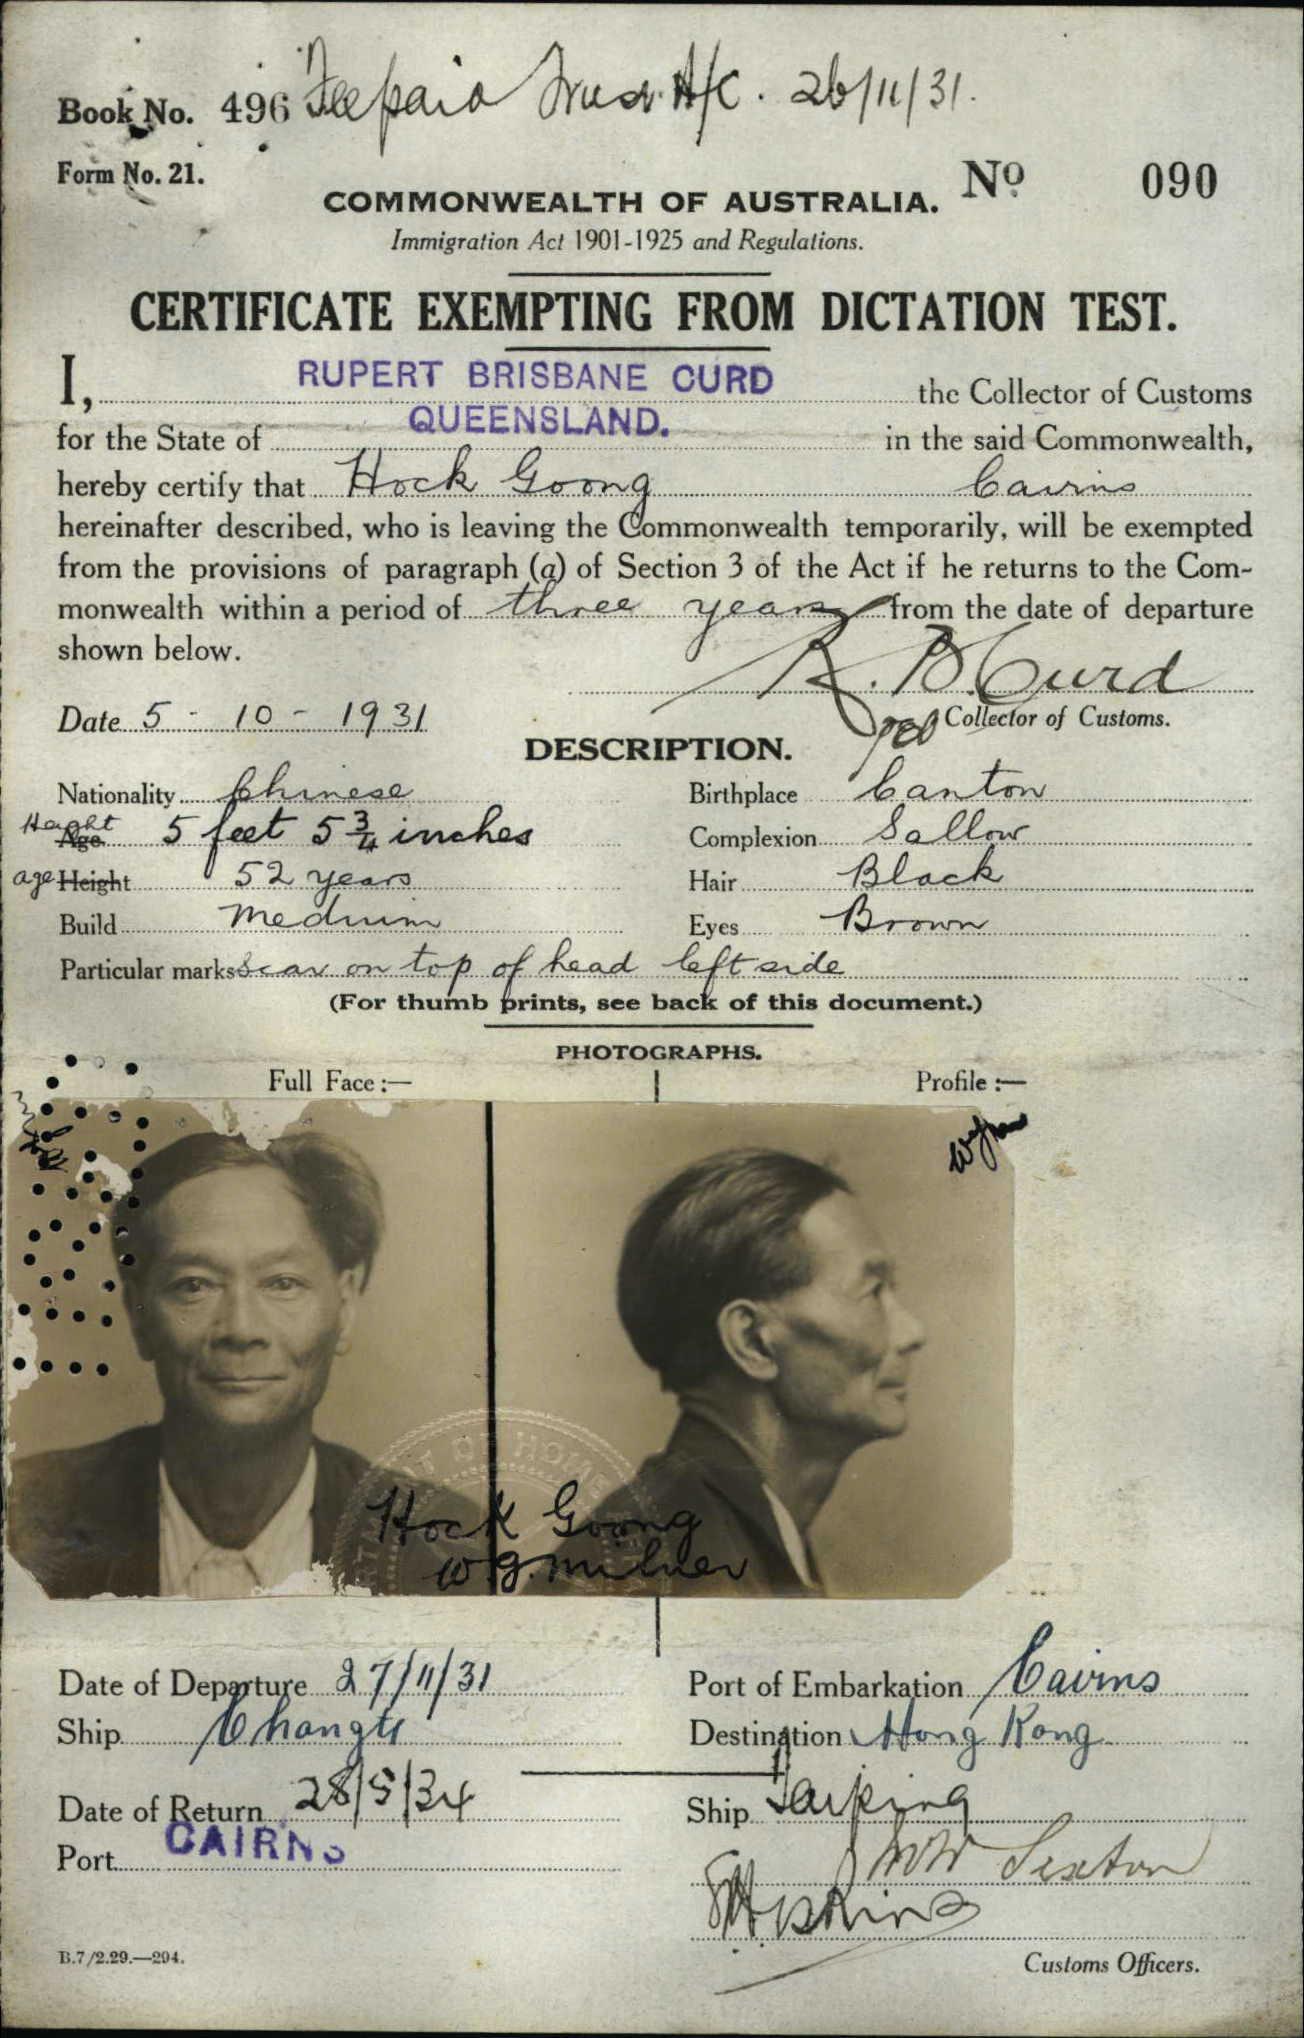 Book No. 496 Fee paid Trust A/C. 26/11/31.
Form No. 21.
No 090
COMMONWEALTH OF AUSTRALIA.
Immigration Act 1901-1925 and Regulations.
CERTIFICATE EXEMPTING FROM DICTATION TEST.
I, RUPERT BRISBANE CURD the Collector of Customs
for the State of QUEENSLAND. in the said Commonwealth,
hereby certify that Hock Goong Cairns
hereinafter described, who is leaving the Commonwealth temporarily, will be exempted
from the provisions of paragraph (a) of Section 3 of the Act if he returns to the Com-
monwealth within a period of three years from the date of departure
shown below.
R. B. Curd
Date 5 - 10 - 1931 Collector of Customs.
DESCRIPTION.
Nationality Chinese Birthplace Canton
Height Age 5 feet 5 3/4 inches Complexion Sallow
age Height 52 years Hair Black
Build Medium Eyes Brown
Particular marks Scar on top of head left side
(For thumb prints, see back of this document.)
PHOTOGRAPHS.
Full Face :— Profile :—
OF HOME
Hock Goong
W. G. Milner
Date of Departure 27/11/31 Port of Embarkation Cairns
Ship Changte Destination Hong Kong
Date of Return 28/5/34 Ship Taiping
Port CAIRNS
Sexton
Customs Officers.
B.7/2.29.—294.